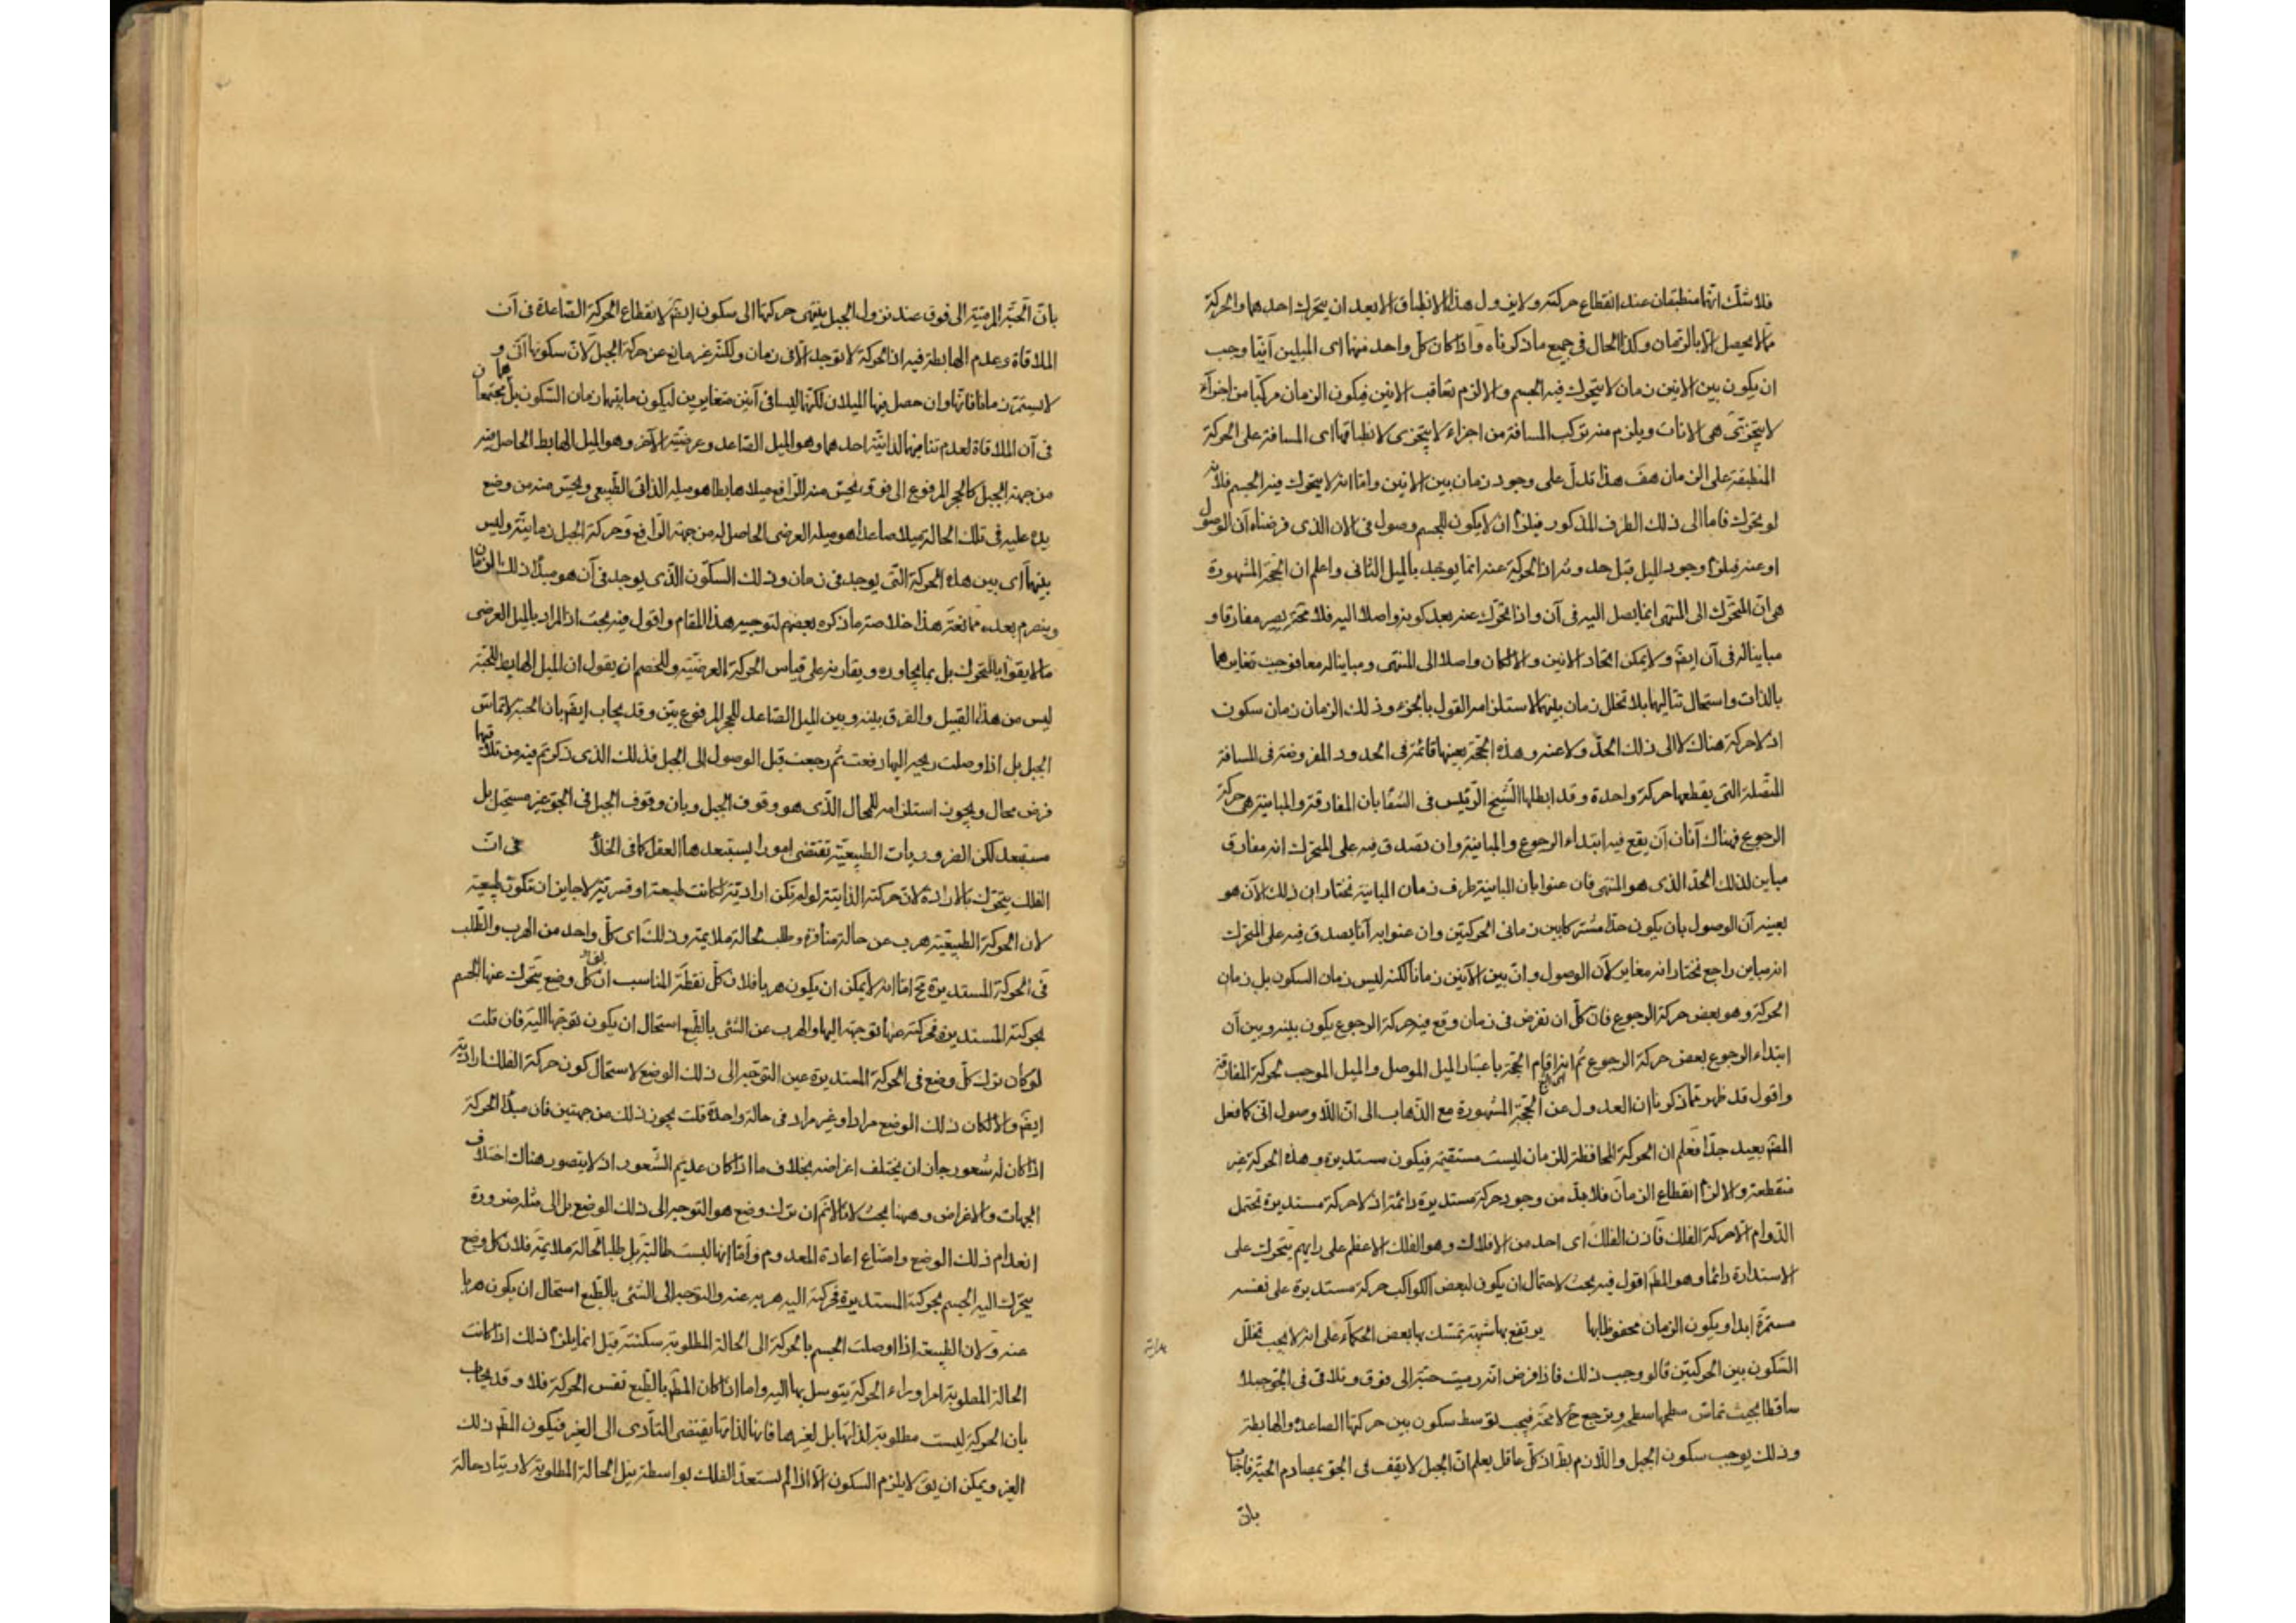 فلا شك انهما منطبقان عند انقطاع حركته ولا يزول هذا الانطباق الا بعد ان يتحرك احدهما والحركة
مما لا يحصل الا بالزمان وكذا الحال فى جميع ما ذكرناه واذا كان كل واحد منهما اى الميلين آنيا وجب
ان يكون بين الانين زمان لا يتحرك فيه الجسم والا لزم تعاقب الانين فيكون الزمان مركبا من اجزآء
لا يتجزى هى الانات ويلزم منه تركب المسافة من اجزاء لا يتجزى لانطباقها اى المسافة على الحركة
المنطبقة على الزمان هف هذا تدل على وجود زمان بين الانين واما انه لا يتحرك فيه الجسم فلانه
لو تحرك فاما الى ذلك الطرف المذكور فيلزم ان لا يكون للجسم وصول فى الان الذى فرضناه آن الوصول
او عنه فيلزم وجود الميل قبل حدوثه اذ الحركة عنه انما يوجد بالميل الثانى واعلم ان الحجة المشهورة
هى ان المتحرك الى المنتهى انما يصل اليه فى آن واذا تحرك عنه بعد كونه واصلا اليه فلا محة يصير مفارقا و
مباينا له فى آن ايضم ولا يمكن اتحاد الانين والا لكان واصلا الى المنتهى ومباينا له معا فوجب تغايرهما
بالذات واستحال تتاليهما بلا تخلل زمان بينهما لاستلزامه القول بالجزء وذلك الزمان زمان سكون
اذ لا حركة هناك لا الى ذلك الحد ولا عنه وهذه الحجة بعينها قائمة فى الحدود المفروضة فى المسافة
المتصلة التى يقطعها حركة واحدة وقد ابطلها الشيخ الرئيس فى الشفا بان المفارقة والمباينة هى حركة
الرجوع فهناك آنان آن يقع فيه ابتداء الرجوع والمباينة وان تصدق فيه على المتحرك انه مفارق
مباين لذلك الحد الذى هو المنتهى فان عنوا بان المباينة طرف زمان المباينة نختار ان ذلك الآن هو
بعينه آن الوصول بان يكون حدا مشتركا بين زمانى الحركتين وان عنوا به آنا يصدق فيه على المتحرك
انه مباين راجع نختار انه مغاير لآن الوصول وان بين الآنين زمانا لكنه ليس زمان السكون بل زمان
الحركة وهو بعض حركة الرجوع فان كل ان تفرض فى زمان وقع فيه حركة الرجوع يكون بينه وبين آن
ابتداء الرجوع بعض حركة الرجوع ثم انه اقام الحجة باعتبار الميل الموصل والميل الموجب لحركة المفارقة
واقول قد ظهر مما ذكرنا ان العدول عن الحجة المشهورة مع الذهاب الى ان اللاوصول انى كما فعل
المصم بعيد جدا فعلم ان الحركة الحافظة للزمان ليست مستقيمة فيكون مستديرة وهذه الحركة غير
منقطعة والا لزم انقطاع الزمان فلا بد من وجود حركة مستديرة دائمة اذ لا حركة مستديرة تحتمل
الدوام الا حركة الفلك فاذن الفلك اى احد من الافلاك وهو الفلك الاعظم على رايهم يتحرك على
الاستدارة دائما وهو المطم اقول فيه بحث لاحتمال ان يكون لبعض الكواكب حركة مستديرة على نفسه
مستمرة ابدا ويكون الزمان محفوظا بها يرتفع بها شبهة تمسك بها بعض الحكمآء على انه لا يجب تخلل
هداية
السكون بين الحركتين قالوا وجب ذلك فاذا فرض انه رميت حبة الى فوق وتلاقى فى الجو جبلا
ساقطا بحيث تماس سطحها سطحه وترجع ح لا محة فيجب توسط سكون بين حركتها الصاعدة والهابطة
وذلك يوجب سكون الجبل واللازم بط اذ كل عاقل يعلم ان الجبل لا يقف فى الجو بمصادم الحبة فاجاب
بان
بان الحبة المرمية الى فوق عند نزول الجبل ينتهى حركتها الى سكون ايضم لانقطاع الحركة الصاعدة فى آن
الملاقاة وعدم الهابطة فيه اذ الحركة لا توجد الا فى زمان ولكنه غير مانع عن حركة الجبل لان سكونها آنى و
لا يستمر زمانا فانها وان حصل فيها الميلان لكنهما ليسا فى آنين متغايرين ليكون ما بينهما زمان السكون بل هما يجتمعان
فى آن الملاقاة لعدم تنافيهما لذاتية احدهما وهو الميل الصاعد وعرضية الآخر وهو الميل الهابط الحاصل فيه
من جهة الجبل كالحجر المرفوع الى فوق يحس منه الرافع ميلا هابطا هو ميله الذاتى الطبيعى ويحس منه من وضع
يده عليه فى تلك الحالة ميلا صاعدا هو ميله العرضى الحاصل له من جهة الرافع وحركة الجبل زمانية وليس
بينهما اى بين هذه الحركة التى يوجد فى زمان وذلك السكون الذى يوجد فى آن هو مبدأ ذلك الزمان
وينصرم بعده ممانعة هذا خلاصة ما ذكره بعضهم لتوجيه هذا المقام واقول فيه بحث اذ المراد بالميل العرضى
ما لا يقوم بالمتحرك بل بما يجاوره ويقارنه على قياس الحركة العرضية وللخصم ان يقول ان الميل الهابط للحبة
ليس من هذا القبيل والفرق بينه وبين الميل الصاعد للحجر المرفوع بين وقد يجاب ايضم بان الحبة لا تماس
الجبل بل اذا وصلت ريحه اليها رفعت ثم رجعت قبل الوصول الى الجبل فذلك الذى ذكرتم فيه من تلاقيهما
فرض محال ويجوز استلزامه للمحال الذى هو وقوف الجبل وبان وقوف الجبل فى الجو غير مستحيل بل
مستبعد لكن الضروريات الطبيعية تقتضى امورا يستبعدها العقل كما فى الخلأ فى ان
الفلك يتحرك بالارادة لان حركته الذاتية لو لم تكن ارادية لكانت طبيعة او قسرية لا جايز ان تكون طبيعية
لان الحركة الطبيعية هرب عن حالة منافرة وطلب لحالة ملايمة وذلك اى كل واحد من الهرب والطلب
فى الحركة المستديرة مح اما انه لا يمكن ان يكون هربا فلان كل نقطة المناسب ان يقال كل وضع يتحرك عنها الجسم
بحركته المستديرة فحركته عنها توجهه اليها والهرب عن الشئ بالطبع استحال ان يكون توجها اليه فان قلت
لو كان ترك كل وضع فى الحركة المستديرة عين التوجه الى ذلك الوضع لاستحال كون حركة الفلك ارادية
ايضم والا لكان ذلك الوضع مرادا وغير مراد فى حالة واحدة قلت يجوز ذلك من جهتين فان مبدأ الحركة
اذا كان له شعور جاز ان يختلف اغراضه بخلاف ما اذا كان عديم الشعور اذ لا يتصور هناك اختلاف
الجهات والاغراض وههنا بحث لانا لا نم ان ترك وضع هو التوجه الى ذلك الوضع بل الى مثله ضرورة
انعدام ذلك الوضع وامتناع اعادة المعدوم واما انها ليست طالبة بل طلبا لحالة ملايمة فلان كل وضع
يتحرك اليه الجسم بحركته المستديرة فحركته اليه هربه عنه والتوجه الى الشئ بالطبع استحال ان يكون هربا
عنه ولان الطبيعة اذا اوصلت الجسم بالحركة الى الحالة المطلوبة سكنته قيل انما يلزم ذلك اذا كانت
الحالة المطلوبة امرا وراء الحركة يتوسل بها اليه واما اذا كان المطم بالطبع نفس الحركة فلا وقد يجاب
بان الحركة ليست مطلوبة لذاتها بل لغيرها فانها لذاتها يقتضى التأدى الى الغير فيكون المطم ذلك
الغير ويمكن ان يق لا يلزم السكون الا اذا لم يستعد الفلك بواسطة نيل الحالة المطلوبة لازدياد حالة